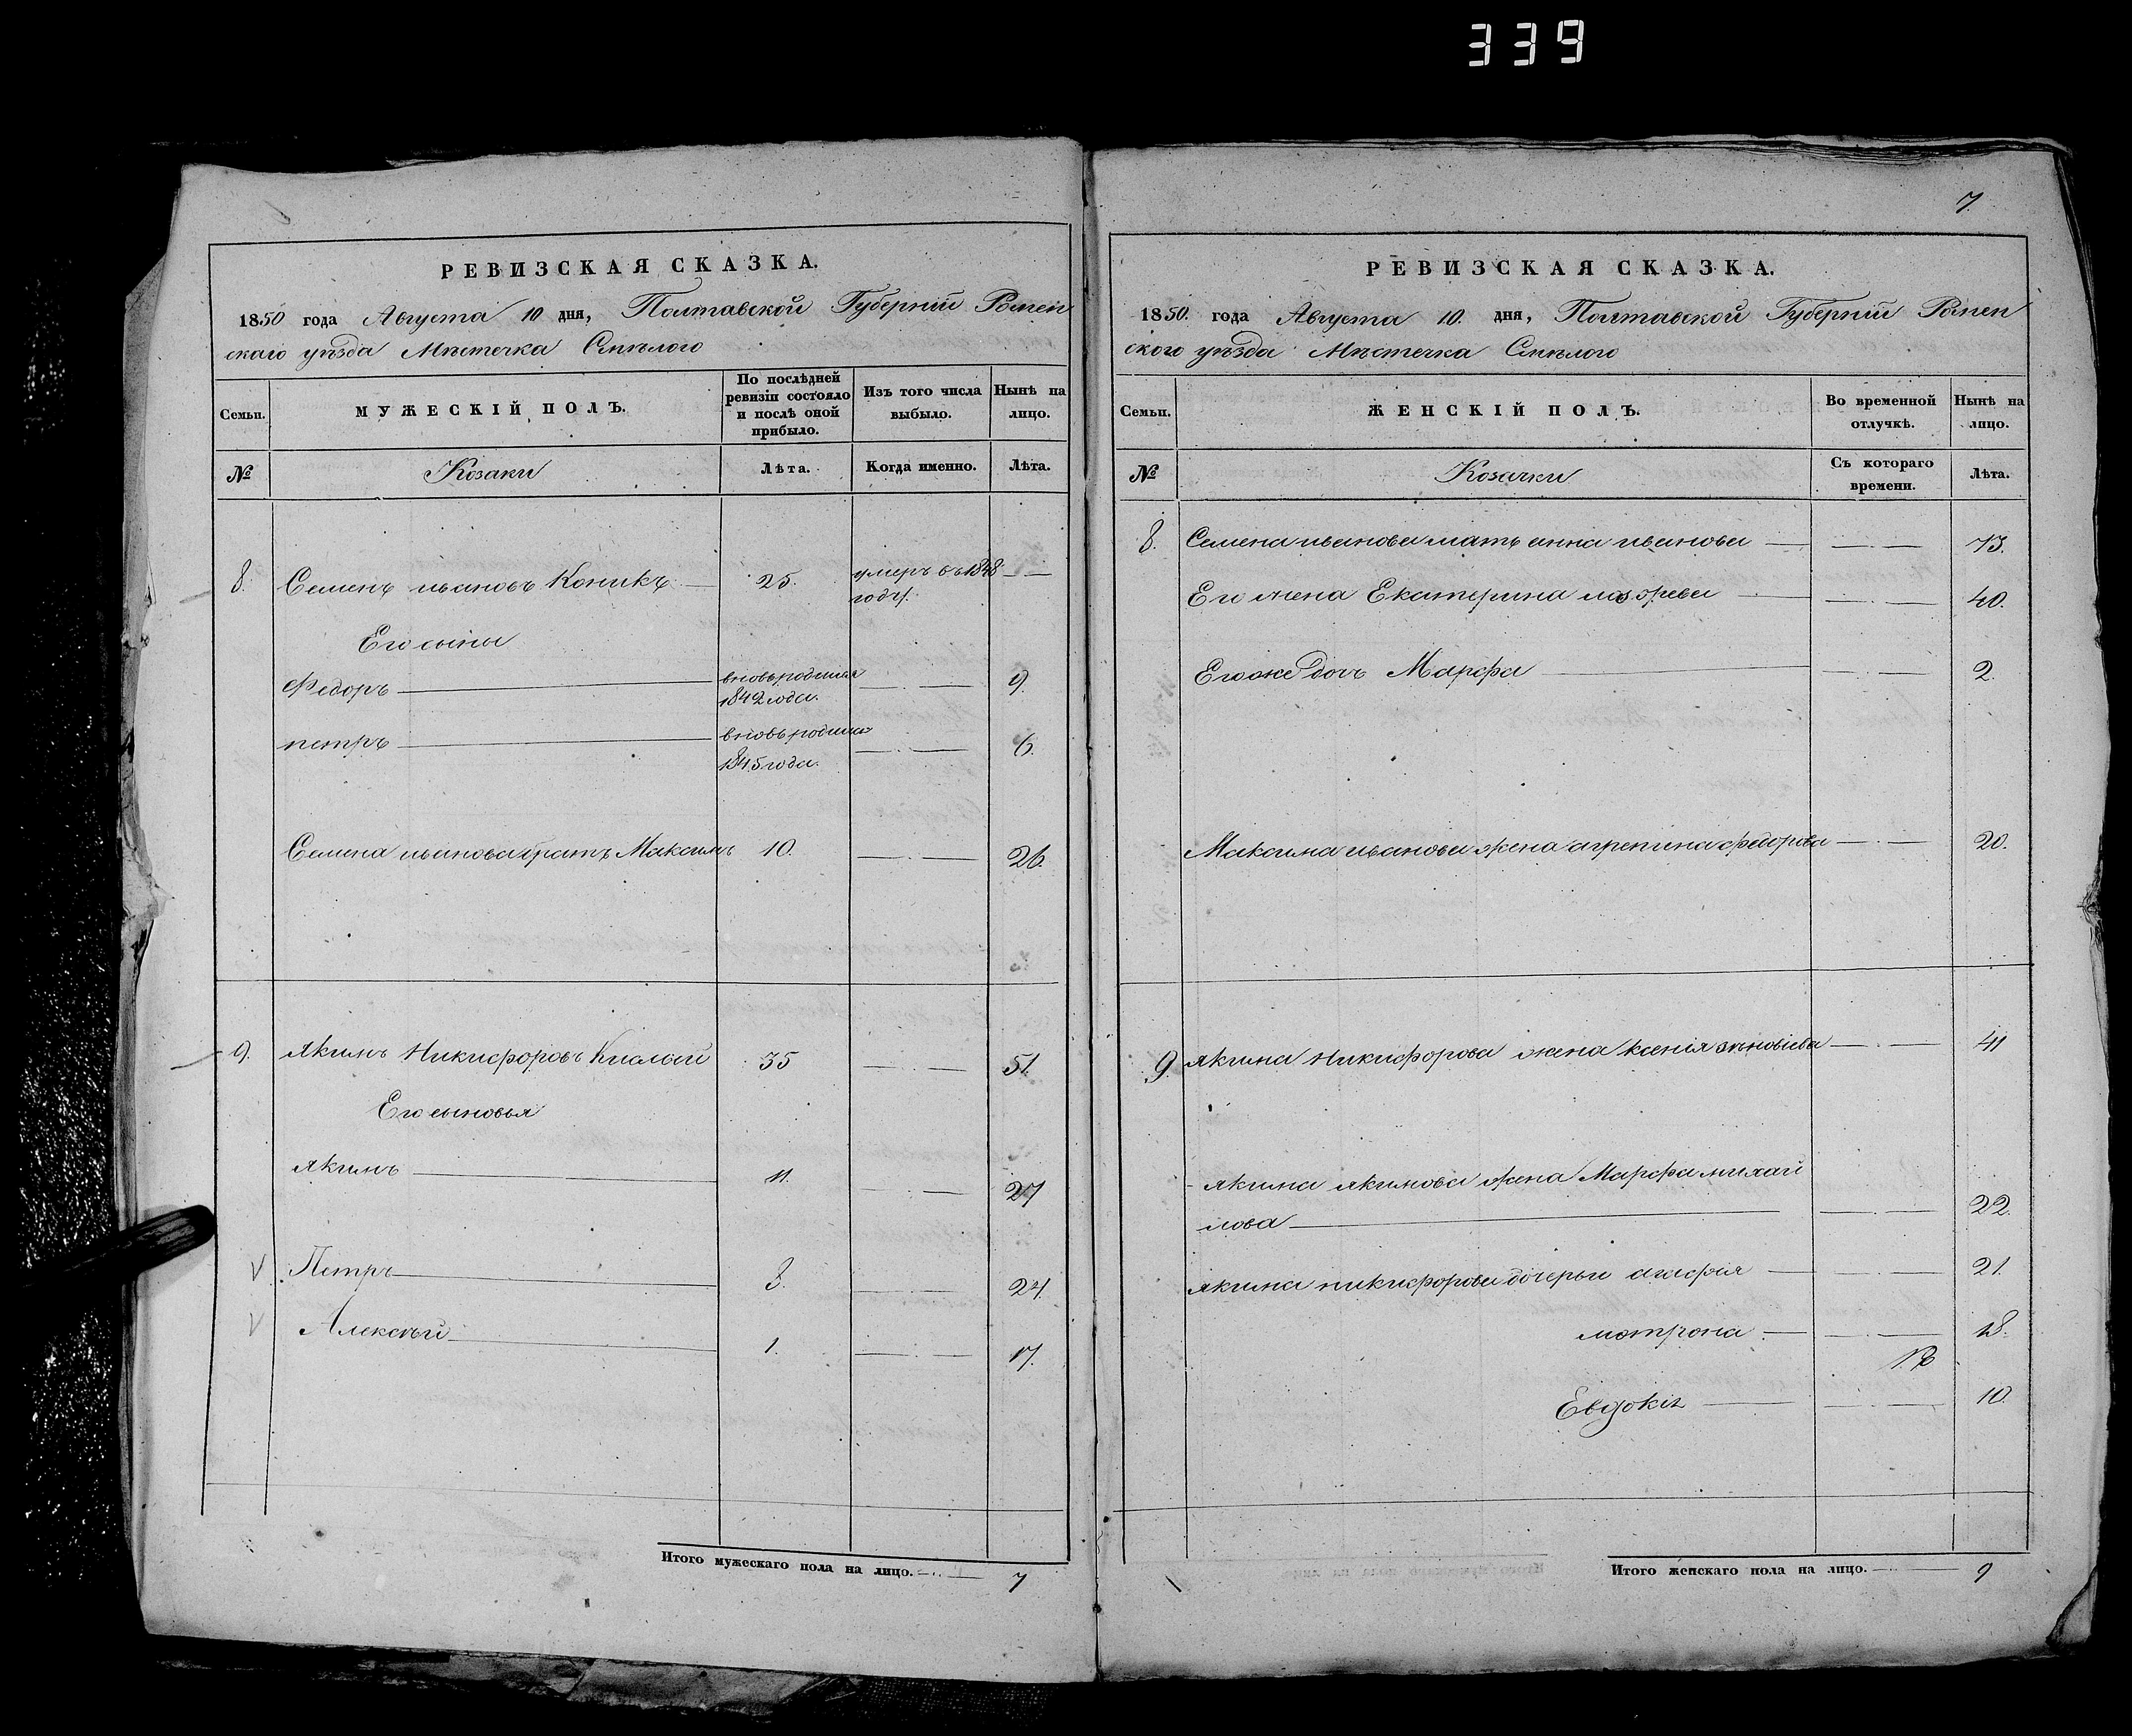 339
РЕВИЗСКАЯ СКАЗКА.
1850 года Августа 10 дня, Полтавской Губерніи Ромен
скаго уѣзда Мѣстечка Смѣлого
Семьи.
МУЖЕСКІЙ ПОЛЪ.
По послѣдней ревизіи состояло и послѣ оной прибыло.
Изъ того числа выбыло.
Нынѣ на лицо.
№
Козаки
Лѣта.
Когда именно.
Лѣта.
8. Семенъ ивановъ Коникъ 25. умеръ въ 1848 году.
Его сыны
Федоръ вновьродился 1842 года. 9.
петръ вновьродился 1845 года. 6.
Семена иванова братъ Максимъ 10. 26.
9. Якимъ Никифоровъ 35 51.
Его сыновья
Якимъ 11. 27
V Петръ 8. 24
V Алексѣй 1. 17.
Итого мужескаго пола на лицо. 7
7
РЕВИЗСКАЯ СКАЗКА.
1850. года Августа 10. дня, Полтавской Губерніи Ромен
ского уѣзда Мѣстечка Смѣлого
Семьи.
ЖЕНСКІЙ ПОЛЪ.
Во временной отлучкѣ.
Нынѣ на лицо.
№
Козачки
Съ котораго времени.
Лѣта.
8. Семена иванова мать анна иванова 73.
Его жена Екатерина 40.
Егоже дочь Марфа 2.
Максима иванова жена агрепина федорова 20.
9. Якима Никифорова жена ксенія зѣновіева 41
Якима якимова жена Марфа михай
лова 22.
якима никифорова дочерьи агафія 21.
мотрона 18.
Евдокія 10.
Итого женскаго пола на лицо. 9